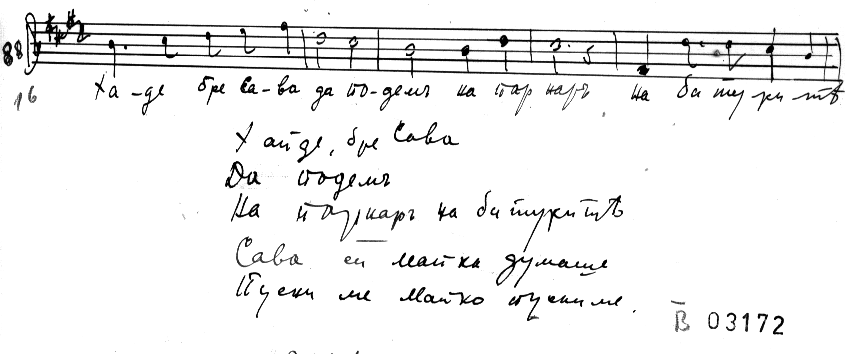 88
16 Ха-де бре Са-ва да по-демъ на пар наръ на би ту ри тѣ
Хайде, бре Сава
Да подемъ
На пазаръ на битуритѣ
Сава ей майка думаше
Пусни ме майко пусни ме.
B 03172